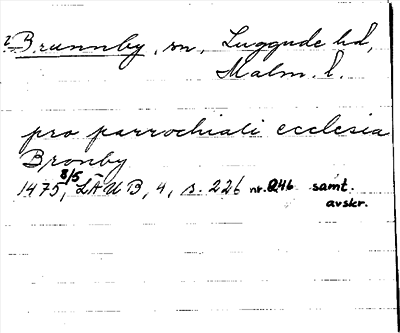 Brunnby, sn, Luggude hd,
Malm. l.
pro parrochiali ecclesia
Bronby
1475 8/5, LÄUB, 4, s. 226 nr. 246 samt.
avskr.